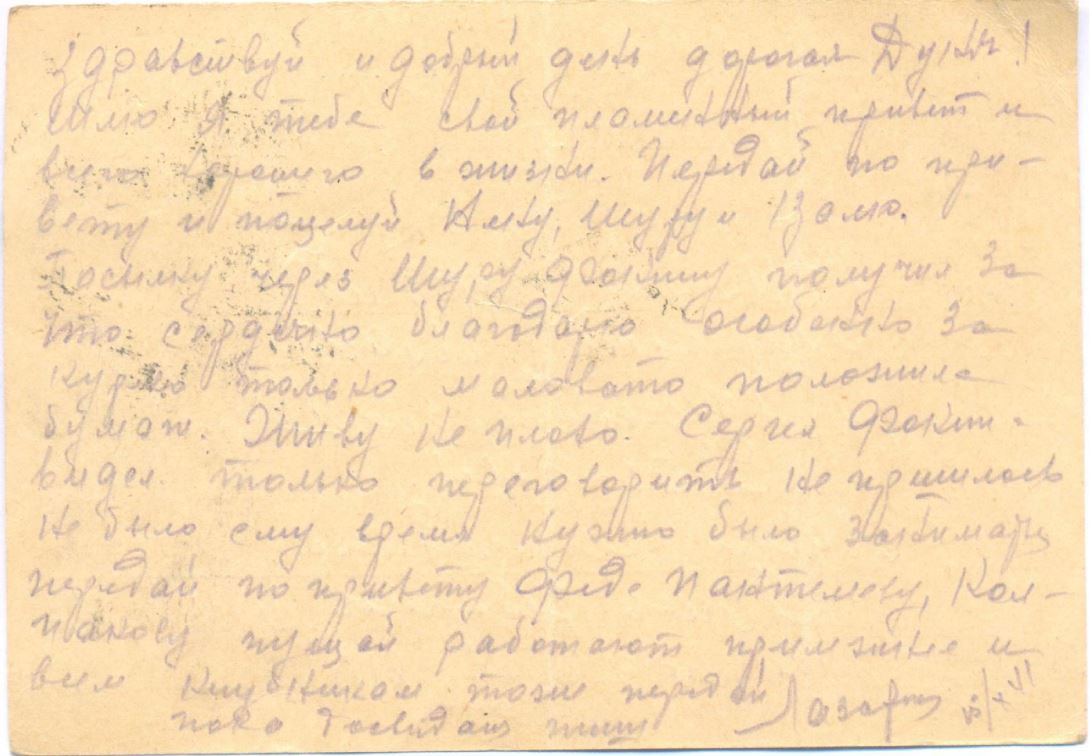 Здравствуй и добрый день дорогая Дуня!
Шлю я тебе свой пламенный привет и
всего хорошего в жизни. Передай по при-
вету и поцелуй Нину, Шуру и Валю.
Посылку через Шуру Фокину получил за
что сердечно благодарю особенно за
курево только маловато положила
бумаж. Живу не плохо. Сергея Фокин-
видел только переговорить не пришлось
не было ему время нужно было заниматься
передай по привету Феде Пантелееву, Кол-
пакову пущай работают прилежнее и
всем клубникам тоже передай
пока досвидания пиши